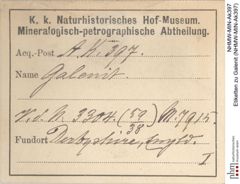 K. k. Naturhistorisches Hof-Museum.
Mineralogisch-petrographische Abtheilung.
Acq.-Post A.k.397.
Name Galenit.
V.d.N. 3304. (50/38) M. 7915.
Fundort Derbyshire, Engld.
I
NHMW-MIN-Ak397
Etiketten zu Galenit (NHMW-MIN-Ak397)
nhm